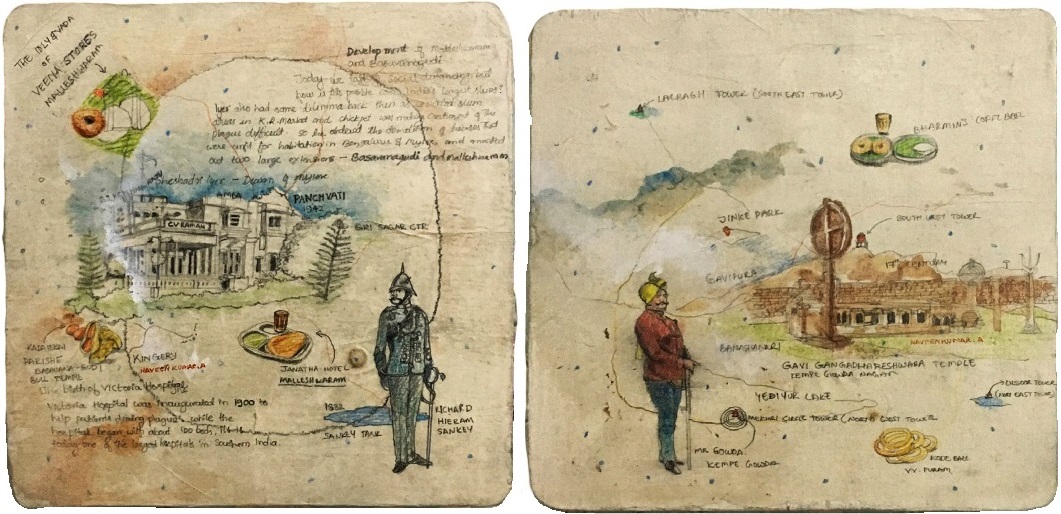 THE IDLY & VADA
OF
VEENA STORES
MALLESHWARAM
Development of Malleshwaram
and Basavanagudi
Today we talk of social distancing but
how is this possible in India's largest slums?
Iyer also had same dilemma back then as
areas in K.R. Market and chickpet was making containment of the
plague difficult. so he ordered the demolition of houses that
were unfit for habitation in Bengaluru & Mysore and marked
out two large extensions - Basavanagudi and malleshwaram
Sheshadri Iyer - Dewan of mysore
AMBA
PANCHVATI
1942
C V RAMAN
GIRI SAGAR CTR
KADALEKAI
PARISHE
BASAVANA GUDI
BULL TEMPLE
KINGERY
NAVEEN KUMAR.A
JANATHA HOTEL
MALLESHWARAM
The birth of Victoria Hospital
Victoria Hospital was inaugurated in 1900 to
help patients during plague, while the
hospital began with about 100 beds, it is
today one of the largest hospitals in Southern India.
1882
SANKEY TANK
RICHARD
HIERAM
SANKEY
LALBAGH TOWER (SOUTH EAST TOWER)
BHARMIN'S COFFE BAR
JINKE PARK
SOUTH WEST TOWER
GAVIPURA
BANASHANKRI
NAVEEN KUMAR.A
GAVI GANGADHARESHWARA TEMPLE
KEMPE GOWDA NAGAR
YEDIYUR LAKE
ULSOOR TOWER
(NORTH EAST TOWER)
MEKHRI CIRCLE TOWER (NORTH WEST TOWER)
MR GOWDA
KEMPE GOWDA
KODE BALE
VV. PURAM